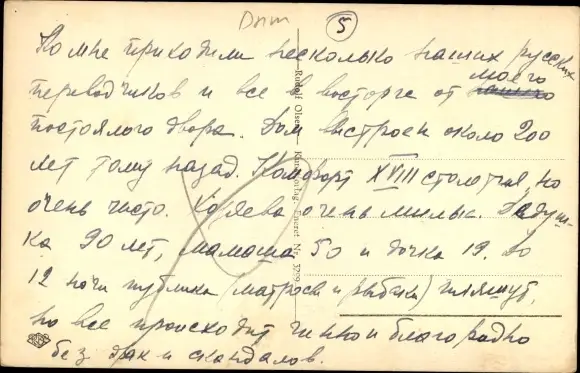 5
Ко мне приходили несколько наших русских
переводчиков и все в восторге от моего
постоялого двора. Дом выстроен около 200
лет тому назад. Комфорт XVIII столетия, но
очень чисто. Хозяева очень милые. Дедуш-
ка 90 лет, мамаша 50 и дочка 19. До
12 ночи публика (матросы и рыбаки) шумят,
но все происходит чинно и благородно
без драк и скандалов.
Rudolf Olsen